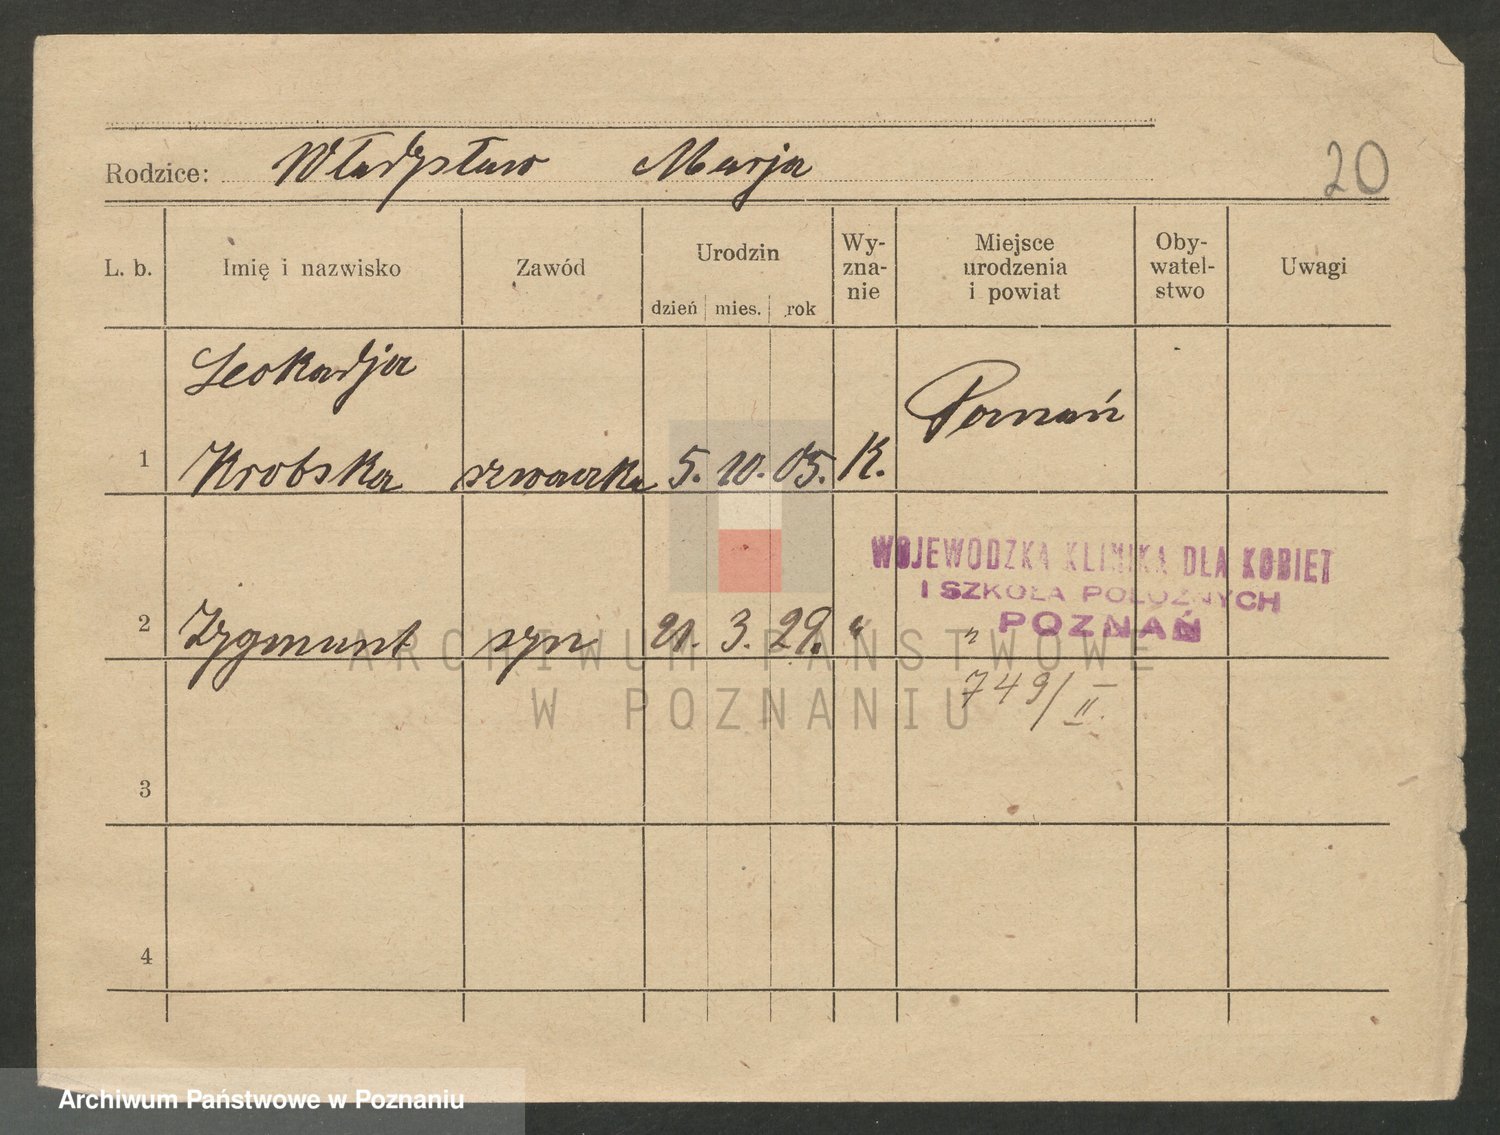 Rodzice: Władysław Marja
20
L. b. Imię i nazwisko Zawód Urodzin dzień mies. rok Wy-zna-nie Miejsce urodzenia i powiat Oby-watel-stwo Uwagi
Leokadja
Poznań
1 Krobska szwaczka 5. 10. 05. K.
WOJEWODZKA KLINIKA DLA KOBIET
I SZKOŁA POŁOŻNYCH
POZNAŃ
2 Zygmunt syn 21. 3. 29. " "
ARCHIWUM PAŃSTWOWE
W POZNANIU
749/II.
3
4
Archiwum Państwowe w Poznaniu